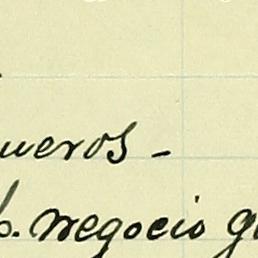 ueros -
b. negocio g